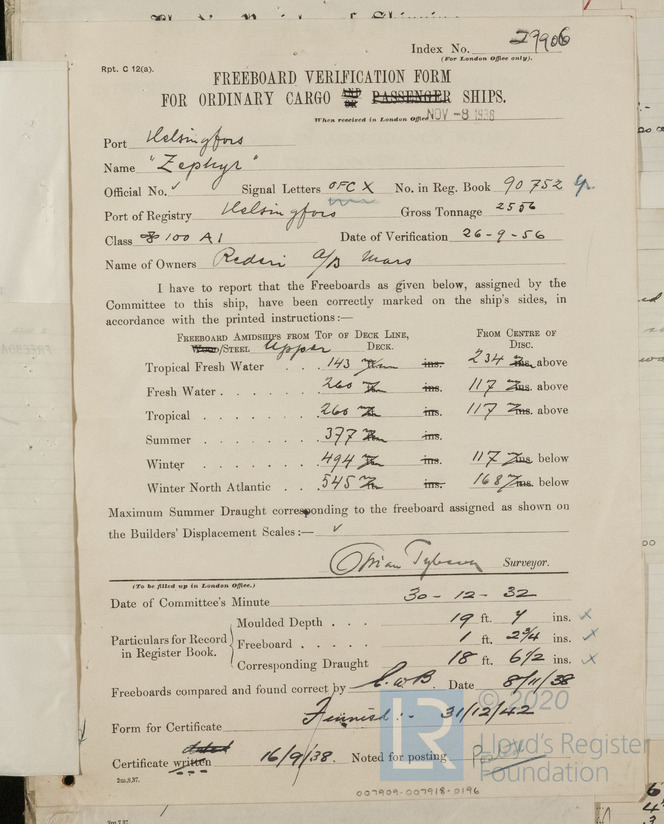 Index No. 29906
(For London Office only).
Rpt. C 12(a).
FREEBOARD VERIFICATION FORM
FOR ORDINARY CARGO AND OR PASSENGER SHIPS.
When received in London Office NOV -8 1938
Port Helsingfors
Name "Zephyr"
Official No. ✓ Signal Letters OFCX No. in Reg. Book 90752
Port of Registry Helsingfors Gross Tonnage 2556
Class 100 A1 Date of Verification 26-9-56
Name of Owners Rederi A/B Mars
I have to report that the Freeboards as given below, assigned by the
Committee to this ship, have been correctly marked on the ship's sides, in
accordance with the printed instructions:—
FREEBOARD AMIDSHIPS FROM TOP OF DECK LINE, FROM CENTRE OF
WOOD/STEEL Upper DECK. DISC.
Tropical Fresh Water . . . 143 ins. 234 ins. above
Fresh Water . . . . . . . 260 117 ins. above
Tropical . . . . . . . 260 ins. 117 ins. above
Summer . . . . . . . 377 ins.
Winter . . . . . . . 494 ins. 117 ins. below
Winter North Atlantic . . . 545 ins. 168 ins. below
Maximum Summer Draught corresponding to the freeboard assigned as shown on
the Builders' Displacement Scales:— ✓
Surveyor.
(To be filled up in London Office.)
Date of Committee's Minute 30-12-32
Particulars for Record in Register Book.
Moulded Depth . . . 19 ft. 7 ins. ×
Freeboard . . . . . 1 ft. 2¾ ins. ×
Corresponding Draught 18 ft. 6½ ins. ×
Freeboards compared and found correct by C.W.B. Date 8/11/38
Form for Certificate Finnish :- 31/12/42
Certificate written 16/9/38. Noted for posting Posted
2m,8,37.
© 2020
LR Lloyd's Register
Foundation
007909-007918-0196